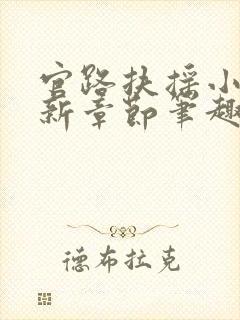 官路扶摇小
新章节笔趣
德布拉克